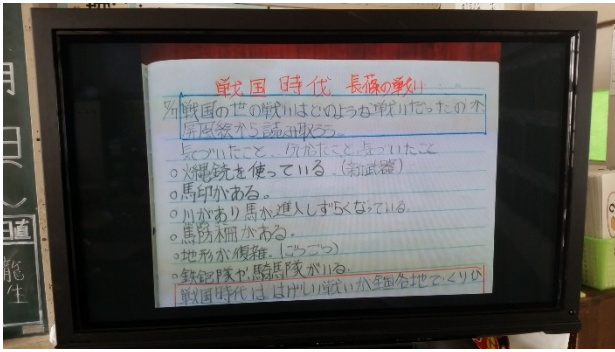 戦国時代 長篠の戦い
戦国の世の戦いはどのような戦いだったのか
屏風絵から読み取ろう。
気づいたこと、
気づいたこと
○火縄銃を使っている。(新武器)
○馬印がある。
○川があり馬が進入しずらくなっている。
○馬防柵がある。
○地形が複雑。(ごつごつ)
○鉄砲隊や騎馬隊がいる。
戦国時代は、はげしい戦いが全国各地でくりひ
月
日
龍
生